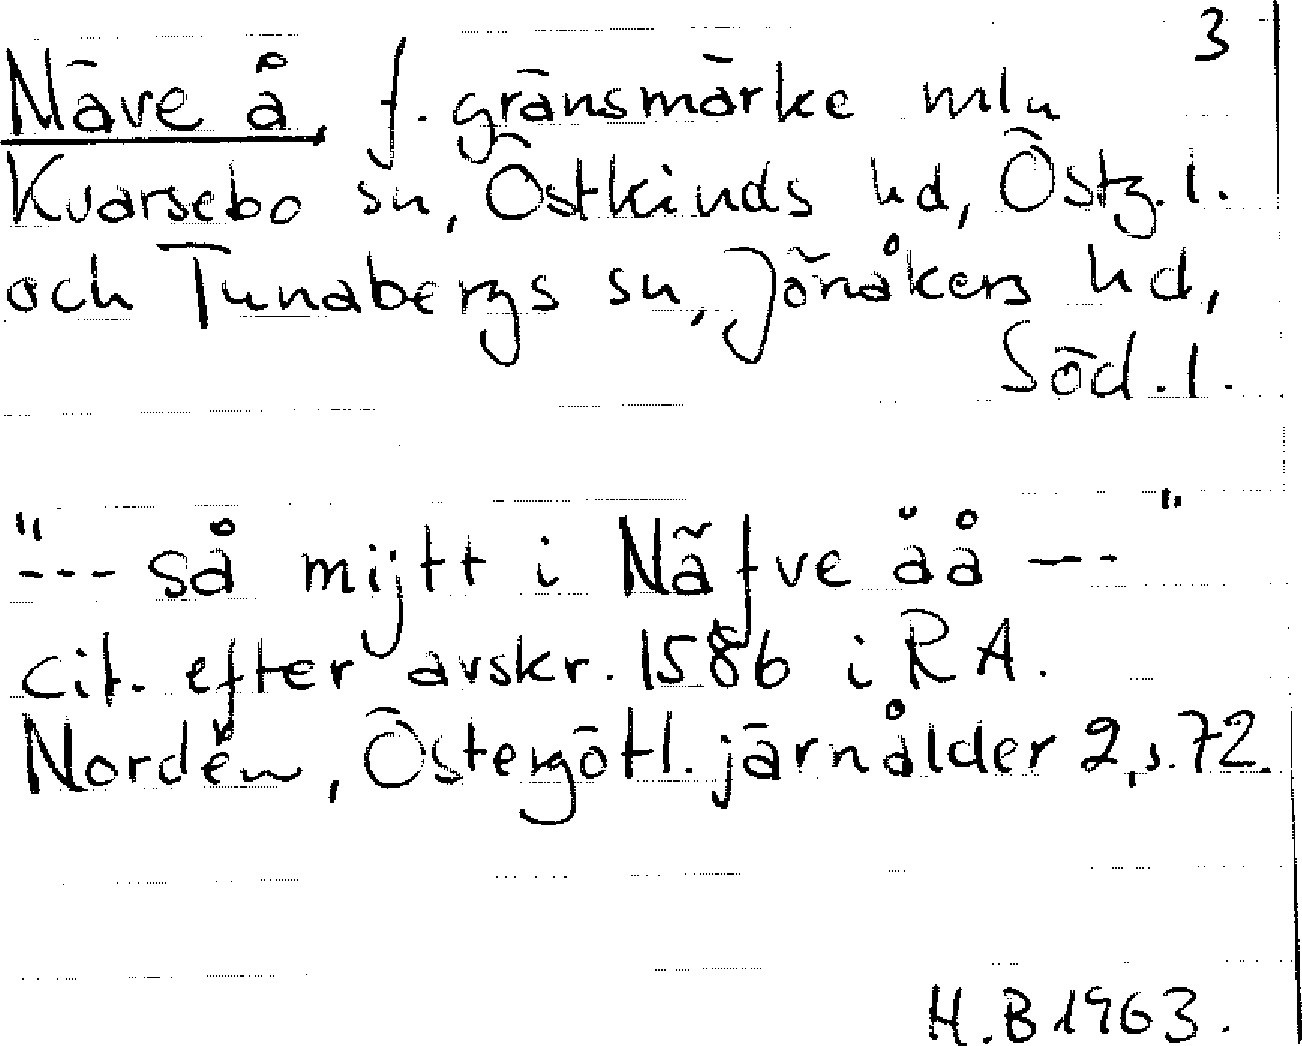 3
Näve å, f. gränsmärke mln
Kvarsebo sn, Östkinds hd, Östg. l.
och Tunabergs sn, Jönåkers hd,
Söd. l.
"--- så mijtt i Näfve åå ---"
cit. efter avskr. 1586 i RA.
Nordén, Östergötl. järnålder 2, s. 72.
H.B 1963.